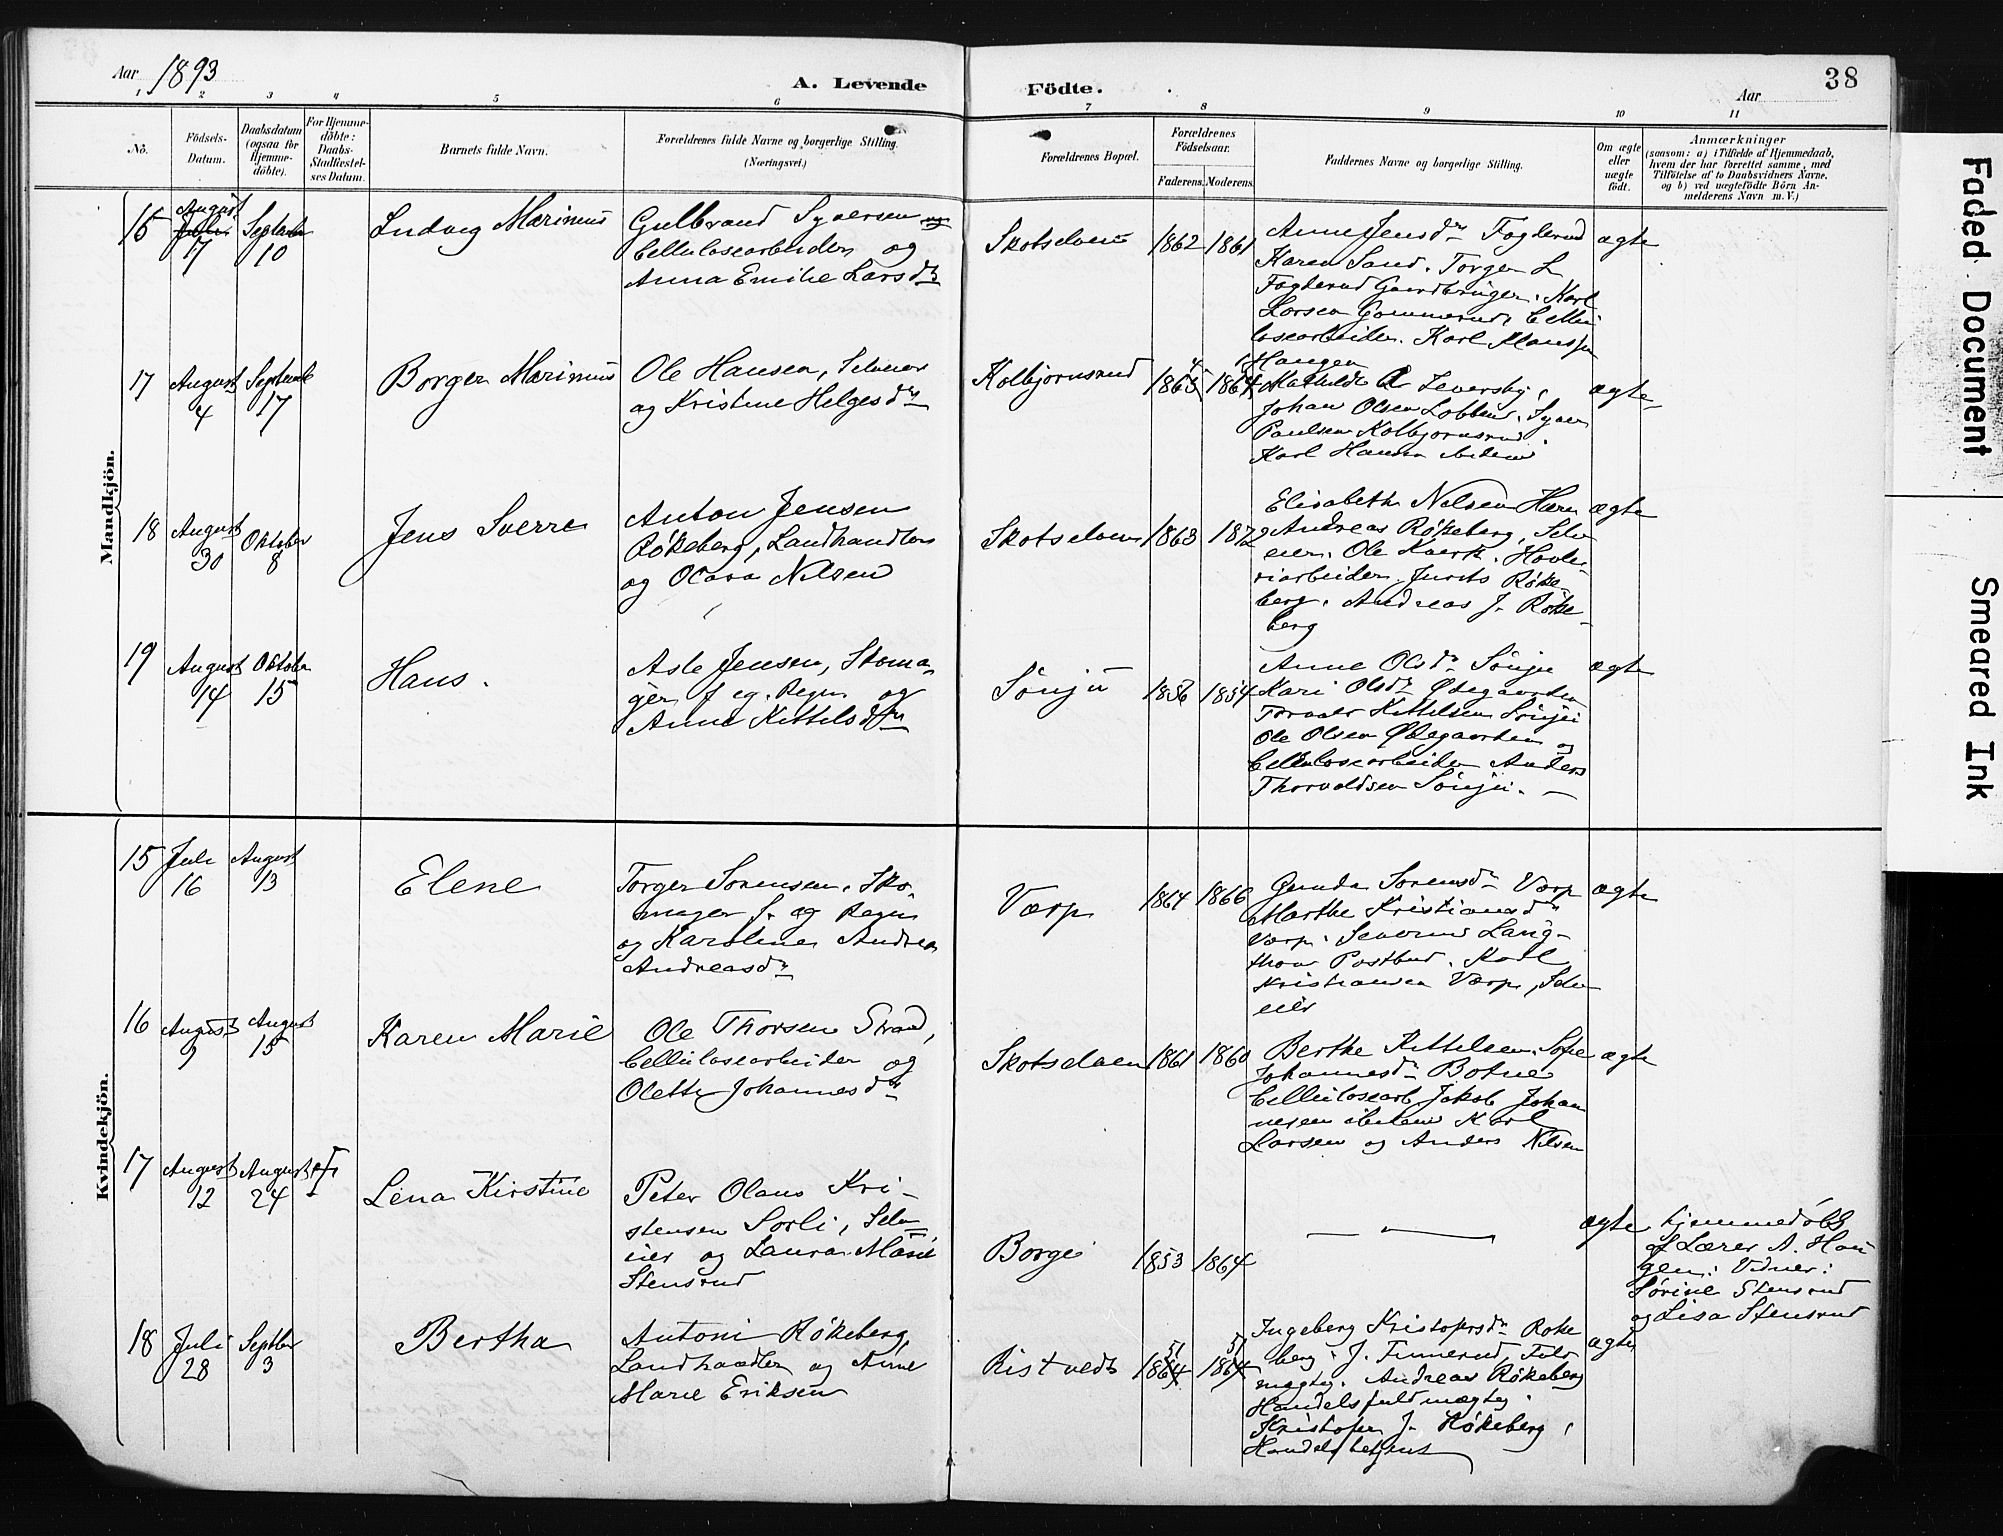 Aar 1893
A. Levende Födte.
38
Aar
1 2 3 4 5 6 7 8 9 10 11
No.
Födsels-Datum.
Daabsdatum (ogsaa for Hjemme-döbte).
For Hjemme-döbte: Daabs-Stadfæstel-ses Datum.
Barnets fulde Navn.
Forældrenes fulde Navne og borgerlige Stilling. (Næringsvei.)
Forældrenes Bopæl.
Forældrenes Födselsaar.
Faderens. Moderens.
Faddernes Navne og borgerlige Stilling.
Om ægte eller uægte födt.
Anmærkninger
(saasom: a) i Tilfælde af Hjemmedaab,
hvem der har forrettet samme, med
Tilföielse af to Daabsvidners Navne,
og b) ved uægtefödte Börn An-
melderens Navn m. V.)
Mandkjön.
16 August 7 September 10 Ludvig Marinius
Gulbrand Syversen
Cellulosearbeider og
Anna Emilie Larsdr
Skotselven 1862 1861
Anne Jensdr Fogderud
Karen Sand. Torger L
Fogderud Gaardbruger. Karl
Larsen Gommerud, Cellu
losearbeider. Karl Hansen
Haugen
ægte
17 August 4 September 17 Borger Marinius
Ole Hansen, Selveier
og Kristine Helgesdr
Kolbjørnsrud 1864
Mathilde Leversby,
Johan Olsen Lobben. Syver
Paulsen Kolbjørnsrud.
Karl Hansen ibidem
ægte
18 August 30 Oktober 8 Jens Sverre
Anton Jensen
Røkeberg, Landhandler
og Olava Nilsen
Skotselven 1863 1872
Elisabeth Nilsen Hærn
Andreas Røkeberg, Selv
eier. Ole Kværk. Hovle-
riarbeider. Jurits Røke-
berg. Andreas J. Røke-
berg
ægte
19 August 14 Oktober 15 Hans.
Asle Jensen, Skoma-
ger f eg. Regn. og
Anne Kittelsdr
Sønju 1856 1854
Anne Olsdr Sønju
Kari Olsdr Ødegaarden
Torvald Kittelsen Sønjui
Ole Olsen Ødegaarden og
Cellulosearbeider Anders
Thorvaldsen Sønjui.
ægte
Kvindekjön.
15 Juli 16 August 13 Elene
Torger Sorensen. Sko-
mager f. eg Regn
og Karoline Andrea
Andreasdr
Værp 1864 1866
Gunda Sorensdr Værp
Marthe Kristiansdr
Værp. Severin Lang-
thon Postbud. Karl
Kristiansen Værp, Selv
eier
ægte
16 August 9 August 15 Karen Marie
Ole Thorsen Strand,
Cellulosearbeider og
Olette Johannesdr
Skotselven 1861 1860
Berthe Kittelsen. Sofie
Johannesdr Botne
Cellulosearb. Jakob Johan
nesen ibidem Karl
Larsen og Anders Nilsen
ægte
17 August 12 August 24 Lena Kirstine
Peter Olaus Kri-
stensen Sorli, Selv
eier og Laura Marie
Stensrud
Borge 1853 1864
ægte
hjemmedøbt
af Lærer A. Hau
gen: Vidner:
Sørine Stensrud
og Lisa Stensrud
18 Juli 28 Septber 3 Bertha
Antoni Røkeberg,
Landhandler og Anne
Marie Eriksen
Ristvedt 51 1864 51 1864
Ingeberg Kristofersdr Roke
berg. J. Tinnerud, Fuld
mægtig. Andreas Røkeberg
Handelsfuldmægtig.
Kristofer J. Røkeberg,
Handelsbetjent
ægte
Faded Document
Smeared Ink